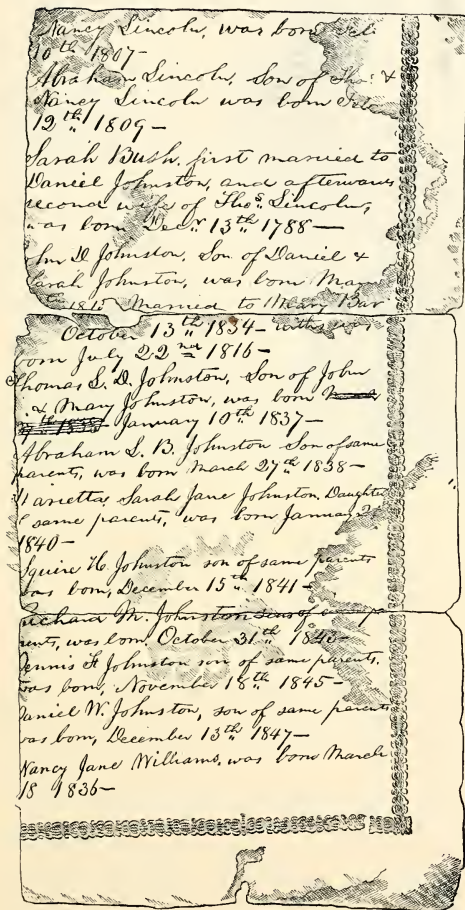 Nancy Lincoln, was born
10th 1807-
Abraham Lincoln, Son of Thos. &
Nancy Lincoln was born
12th 1809-
Sarah Bush, first married to
Daniel Johnston, and afterwards
second wife of Thos. Lincoln,
was born Decr. 13th 1788-
John D Johnston, Son of Daniel &
Sarah Johnston, was born May
Married to Mary Bar
October 13th 1834-
born July 22nd 1816-
Thomas L. D. Johnston, Son of John
& Mary Johnston, was born
January 10th 1837-
Abraham L. B. Johnston Son of same
parents, was born March 27th 1838-
Marietta Sarah Jane Johnston, Daughte
of same parents, was born January
1840-
Squire H. Johnston son of same parents
was born, December 15th 1841-
Richard M. Johnston
rents, was born October 31th
Dennis F Johnston son of same parents.
was born, November 18th 1845-
Daniel W. Johnston, son of same parents
was born, December 13th 1847-
Nancy Jane Williams, was born March
18 1836-